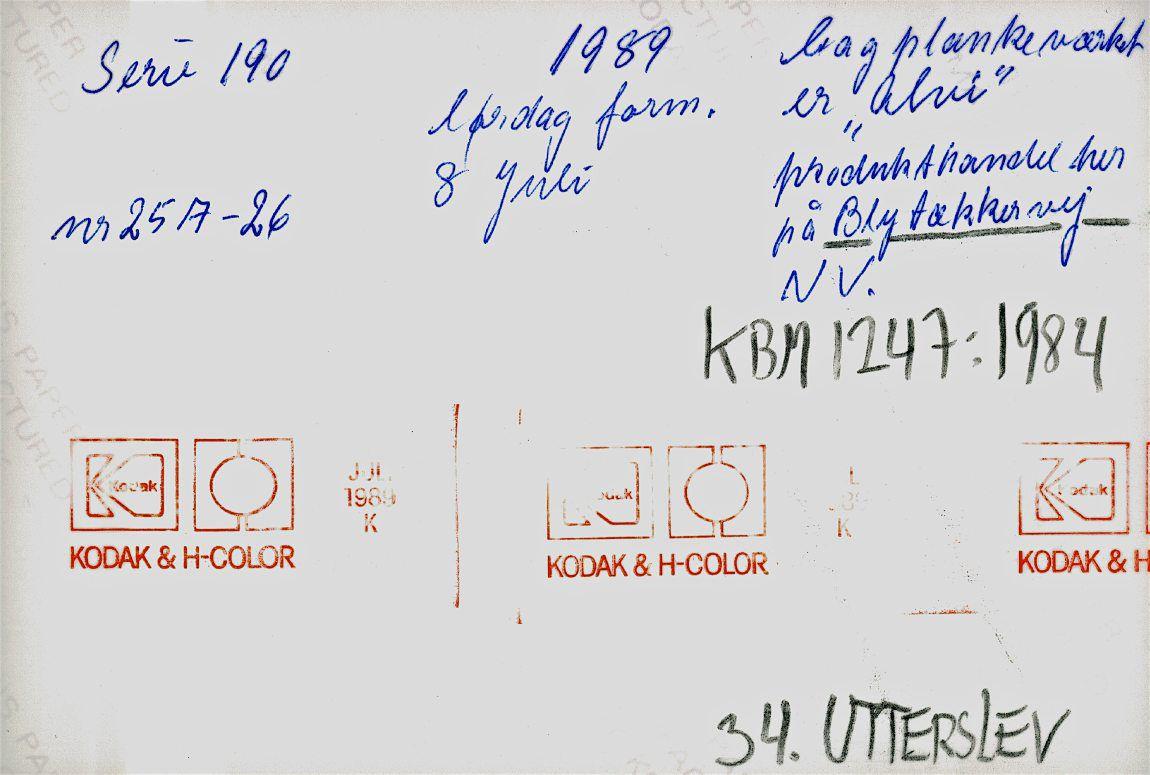 Serie 190
nr 25 A-26
1989
lørdag form.
8 Juli
bag plankeværket
er „Alvi"
produkthandel her
på Blytækkervej
NV.
KBM 1247:1984
Kodak
KODAK & H-COLOR
JUL
1989
K
Kodak
KODAK & H-COLOR
K
Kodak
KODAK & H
34. UTTERSLEV